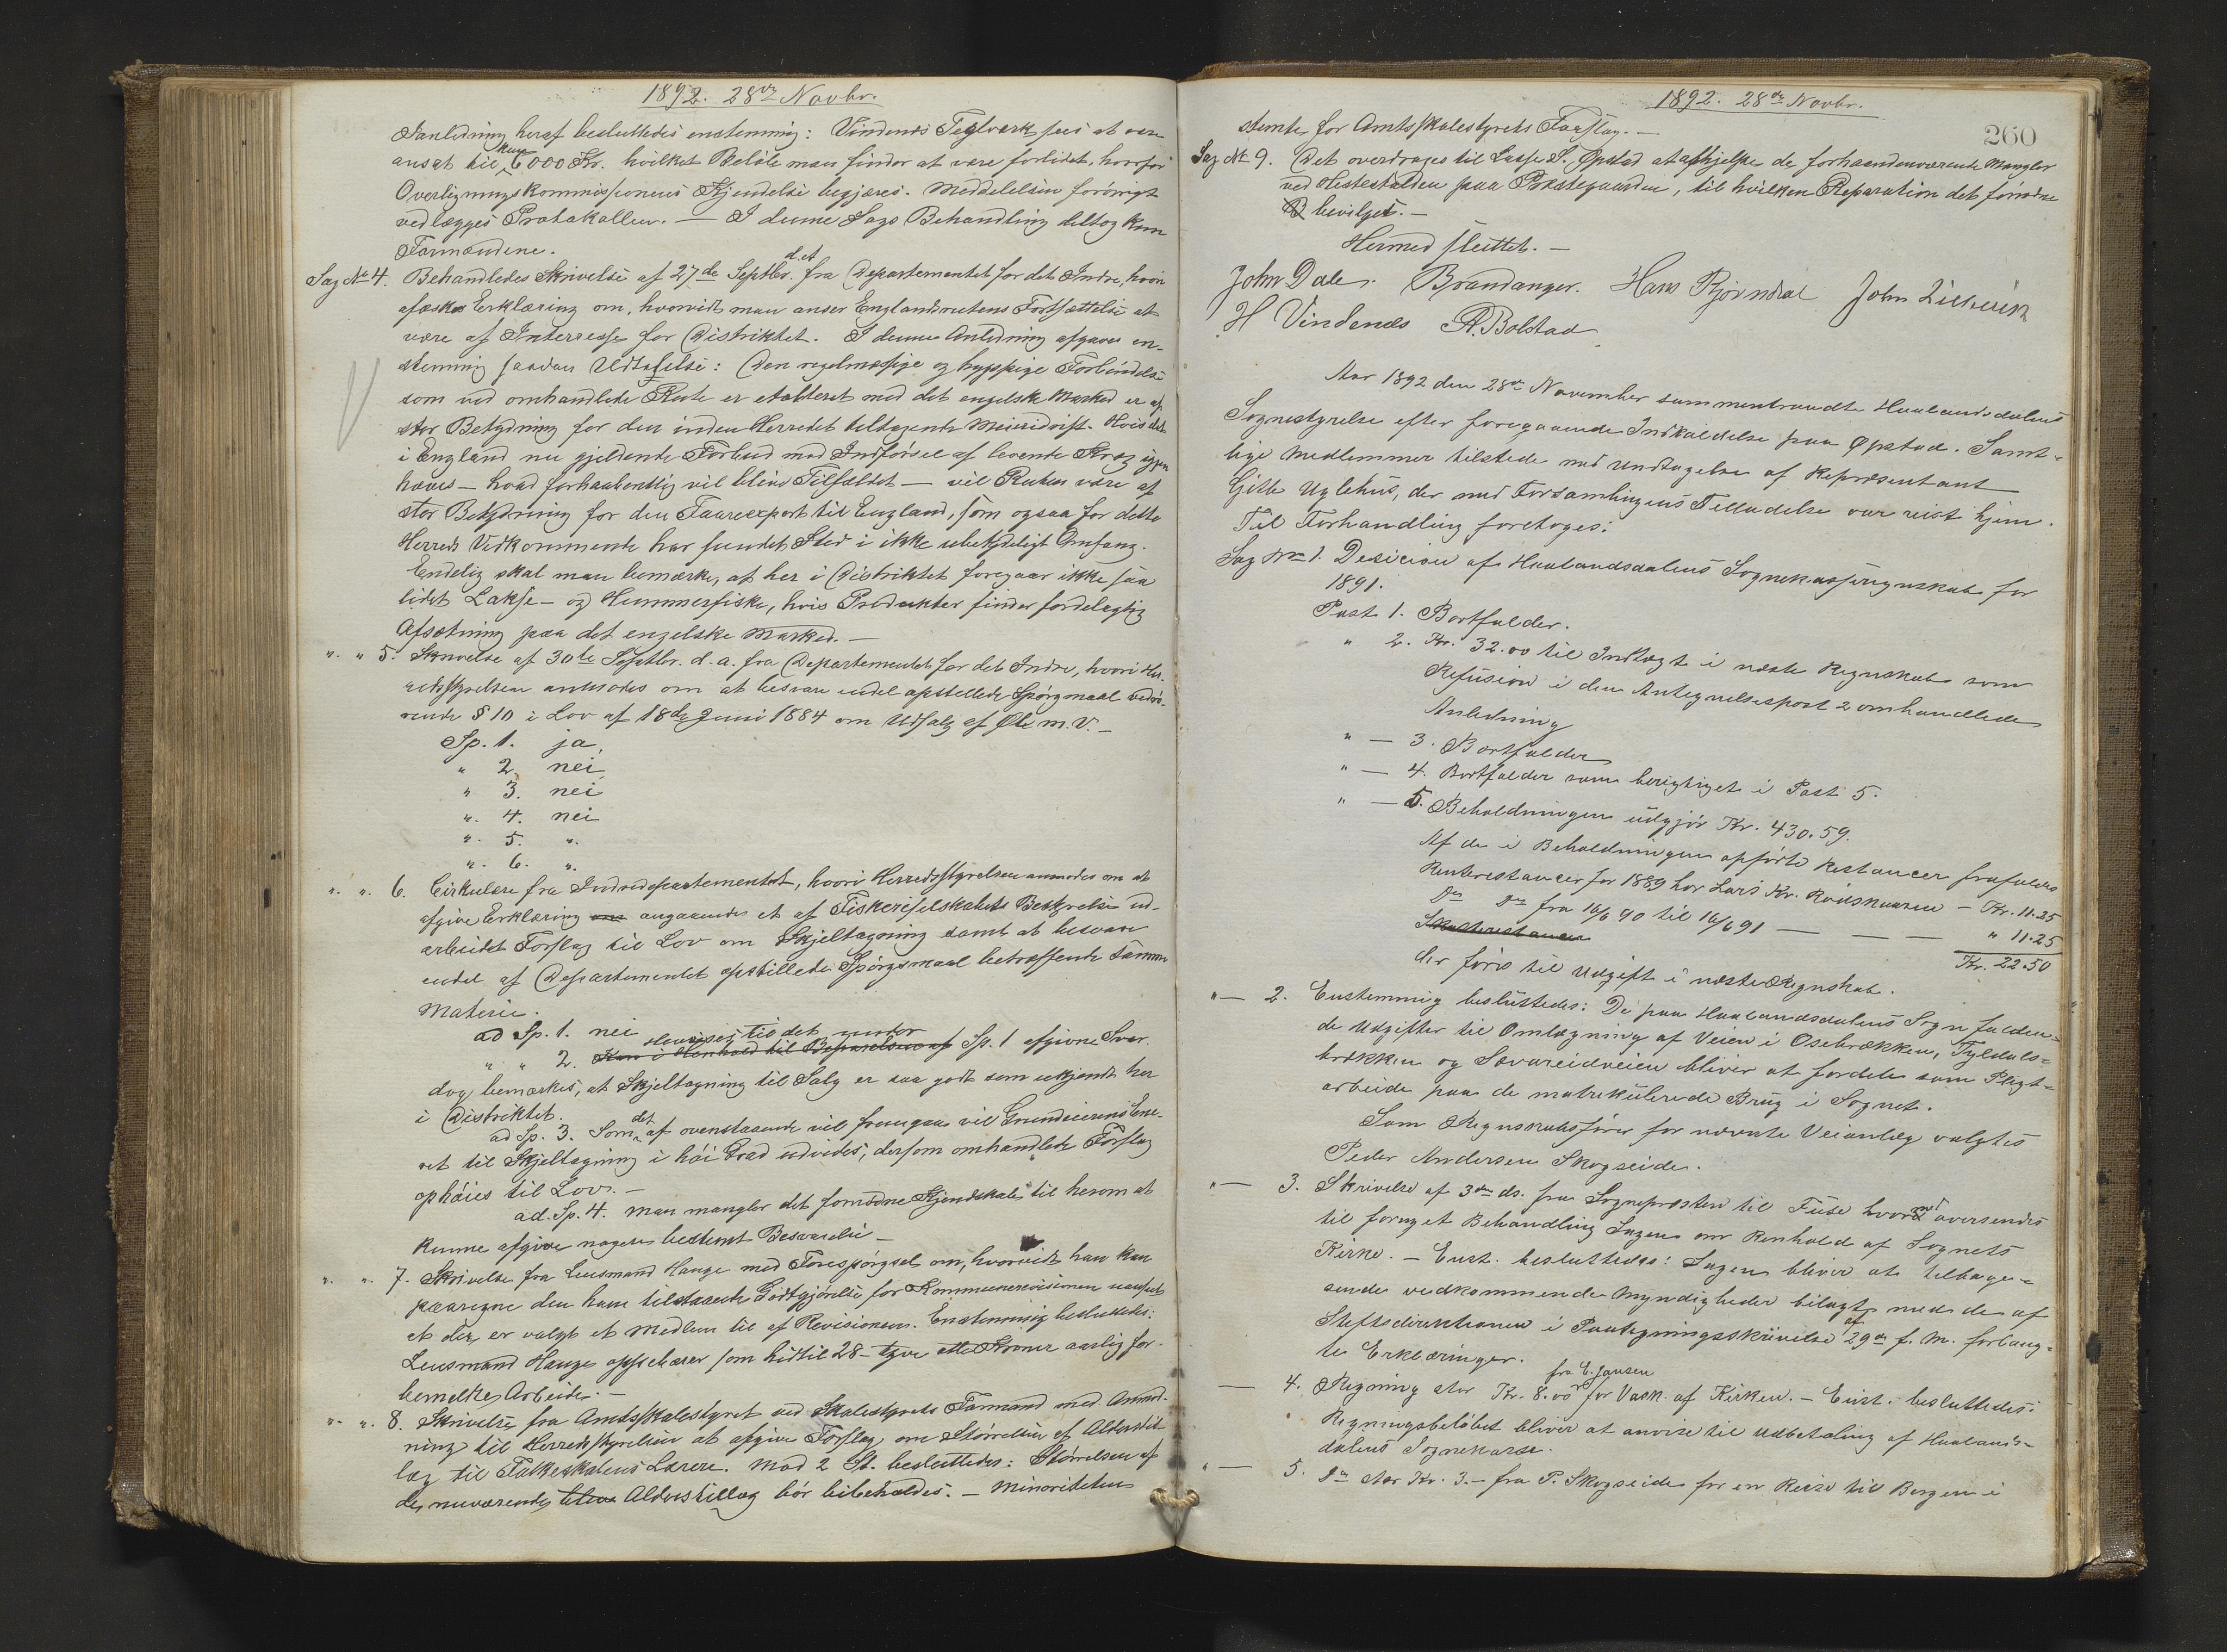 1892. 28de Novbr.
Janledning heraf besluttedes enstemmig: Vindenes Teglværk sees at være
ansat til kun 6000 Kr. hvilket Beløb man finder at være forlidet, hvorfor
Overligningskommissionens Kjendelse begjæres. Meddelelsen forøvrigt
vedlægges Protokollen. — I denne Sags Behandling deltog kun
Formændene.
Sag No 4. Behandledes Skrivelse af 27de Septbr. d.A. fra Departementet for det Indre, hvori
afæskes Erklæring om, hvorvidt man anser Englandsrutens Fortsættelse at
være af Interresse for Distriktet. I denne Anledning afgaves en-
stemmig saadan Udtalelse: Den regelmæssige og hyppige Forbindelse
som ved omhandlede Rute er etableret med det engelske Marked er af
stor Betydning for den inden Herredet tiltagende Meieridrift. Hvis det
i England nu gjeldende Forbud mod Indførsel af levende Kvæg igjen
hæves — hvad forhaabentlig vil blive Tilfældet — vil Ruten være af
stor Betydning for den Faareexport til England, som ogsaa for dette
Herreds Vedkommende har fundet Sted i ikke ubetydeligt Omfang.
Endelig skal man bemærke, at her i Distriktet foregaar ikke saa
lidet Lakse- og Hummerfiske, hvis Produkter finder fordelagtig
Afsætning paa det engelske Marked. —
" " 5. Skrivelse af 30te Septbr. d.a. fra Departementet for det Indre, hvori Her-
redsstyrelsen anmodes om at besvare endel opstillede Spørgsmaal vedrø-
rende § 10 i Lov af 18de Juni 1884 om Udsalg af Øl m.V. —
Sp. 1. ja
" 2. nei
" 3. nei
" 4. nei
" 5. "
" 6. "
" " 6. Cirkulære fra Indredepartementet, hvori Herredsstyrelsen anmodes om at
afgive Erklæring om angaaende et af Fiskeriselskabets Bestyrelse ud-
arbeidet Forslag til Lov om Skjeltagning samt at besvare
endel af Departementet opstillede Spørgsmaal betræffende samme
Materie.
ad Sp. 1. nei
" " 2. Kan i Henhold til Besvarelsen af henvises til det under Sp. 1 afgivne Svar.
dog bemærkes, at Skjeltagning til Salg er saa godt som ukjendt her
i Distriktet.
ad Sp. 3. Som det af ovenstaaende vil fremgaa vil Grundeierens Ene-
ret til Skjeltagning i høi Grad udvides, dersom omhandlede Forslag
ophøies til Lov. —
ad. Sp. 4. Man mangler det fornødne Kjendskab til herom at
kunne afgive nogen bestemt Besvarelse —
" " 7. Skrivelse fra Lensmand Hauge med Forespørgsel om, hvorvidt han kan
paaregne den ham tilstaaede Godtgjørelse for Kommunerevisionen uanset
at der er valgt et Medlem til af Revisionen. Enstemmig besluttedes:
Lensmand Hauge oppebærer som hidtil 28 – tyve otte Kroner aarlig for
bemeldte Arbeide. —
" " 8. Skrivelse fra Amtsskolestyret ved Skolestyrets Formand med Anmod-
ning til Herredsstyrelsen at afgive Forslag om Størrelsen af Alderstil-
læg til Folkeskolens Lærere. Mod 2 St. besluttedes: Størrelsen af
de nuværende blive Alderstillæg bør bibeholdes. — Minoriteten
1892. 28de Novbr.
260
stemte for Amtsskolestyrets Forslag. —
Sag No 9. Det overdrages til Lasse L. Øpstad at afhjelpe de forhaandenværende Mangler
ved Hestestalden paa Præstegaarden, til hvilken Reparation det fornødne
B bevilges. —
Hermed sluttet. —
John Dale. Brandanger. Hans Bjørndal
H Vindenes A. Bolstad
Aar 1892 den 28de November sammentraadte Haalandsdalens
Sognestyrelse efter foregaaende Indkaldelse paa Øpstad. Samt-
lige Medlemmer tilstede med Undtagelse af Repræsentant
Gitle Uglehus, der med Forsamlingens Tilladelse var reist hjem.
Til Forhandling foretoges:
Sag No 1. Desicion af Haalandsdalens Sognekasseregnskab for
1891.
Post 1. Bortfalder.
" 2. Kr. 32.00 til Indtægt i næste Regnskab som
Refusion i den Antegnelsespost 2 omhandlede
Anledning
" — 3. Bortfalder
" — 4. Bortfalder som berigtiget i Post 5.
" — 5. Beholdningen udgjør Kr. 430.59.
Af de i Beholdningen opførte Restancer frafaldes
Renterestancer for 1889 hos Lars Kr. Røislien – Kr. 11.25
Do do fra 16/6 90 til 16/6 91 — — — " 11.25
Skatterestancer
Kr. 22.50
der føres til Udgift i næste Regnskab.
" — 2. Enstemmig besluttedes: De paa Haalandsdalens Sogn falden-
de Udgifter til Omlægning af Veien i Osebrækken, Tyldals-
brækken og Sævareidveien bliver at fordele som Pligt-
arbeide paa de matrikulerede Brug i Sognet.
Som Regnskabsfører for nævnte Veianlæg valgtes
Peder Andersen Skogseide.
" — 3. Skrivelse af 3die ds. fra Sognepræsten til Fuse hvormed oversendes
til fornyet Behandling Sagen om Renhold af Sognets
Kirke. — Enst. besluttedes: Sagen bliver at tilbage-
sende vedkommende Myndigheder bilagt med de af
Stiftsdirektionen i Paategningsskrivelse af 29de f. M. forlang-
te Erklæringer.
— 4. Regning stor Kr. 8.00 fra E. Jansen for Vask af Kirken. — Enst. besluttedes:
Regningsbeløbet bliver at anvise til Udbetaling af Haalands-
dalens Sognekasse.
" — 5. Do stor Kr. 3. — fra P. Skogseide for en Reise til Bergen i